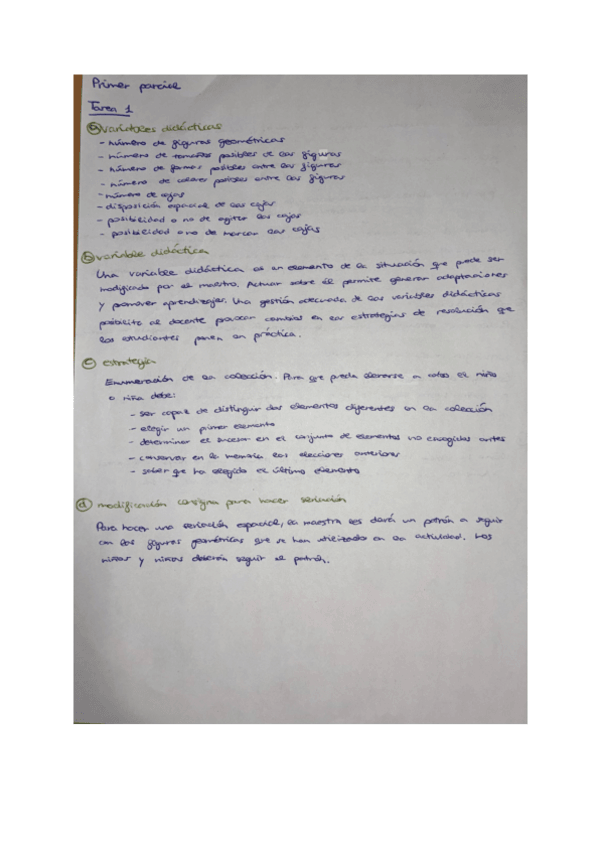 Primer parcial
Tarea 1
a variables didácticas
- número de figuras geométricas
- número de tamaños posibles de las figuras
- número de formas posibles entre las figuras
- número de colores posibles entre las figuras
- número de cajas
- disposición espacial de las cajas
- posibilidad o no de agitar las cajas
- posibilidad o no de marcar las cajas
b variable didáctica
Una variable didáctica es un elemento de la situación que puede ser
modificado por el maestro. Actuar sobre él permite generar adaptaciones
y promover aprendizajes. Una gestión adecuada de las variables didácticas
posibilita al docente provocar cambios en las estrategias de resolución que
los estudiantes ponen en práctica.
c estrategia
Enumeración de la colección. Para que pueda llevarse a cabo el niño
o niña debe:
- ser capaz de distinguir dos elementos diferentes en la colección
- elegir un primer elemento
- determinar el sucesor en el conjunto de elementos no escogidos antes
- conservar en la memoria las elecciones anteriores
- saber que ha elegido el último elemento
d modificación consigna para hacer seriación
Para hacer una seriación espacial, la maestra les dará un patrón a seguir
con las figuras geométricas que se han utilizado en la actividad. Los
niños y niñas deberán seguir el patrón.